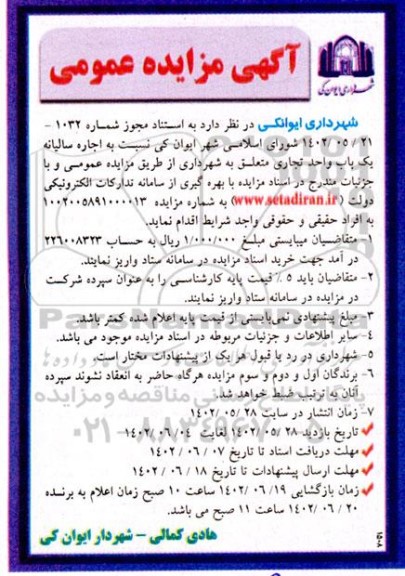 آگهی مزایده عمومی
شهرداری ایوان کی
شهرداری ایوانکی در نظر دارد به استناد مجوز شماره ۱۰۳۲ -
۱۴۰۲/۰۵/۲۱ شورای اسلامی شهر ایوان کی نسبت به اجاره سالیانه
یک باب واحد تجاری متعلق به شهرداری از طریق مزایده عمومی و با
جزئیات مندرج در اسناد مزایده با بهره گیری از سامانه تدارکات الکترونیکی
دولت (www.setadiran.ir) به شماره مزایده ۱۰۰۲۰۰۵۸۹۱۰۰۰۰۱۳
به افراد حقیقی و حقوقی واجد شرایط اقدام نماید.
۱- متقاضیان میبایستی مبلغ ۱/۰۰۰/۰۰۰ ریال به حساب ۲۲۶۰۰۸۳۲۳
در آمد جهت خرید اسناد مزایده در سامانه ستاد واریز نمایند.
۲- متقاضیان باید ۵ ٪ قیمت پایه کارشناسی را به عنوان سپرده شرکت
در مزایده در سامانه ستاد واریز نمایند.
۳- مبلغ پیشنهادی نمی‌بایستی از قیمت پایه اعلام شده کمتر باشد.
۴- سایر اطلاعات و جزئیات مربوطه در اسناد مزایده موجود می باشد.
۵- شهرداری در رد یا قبول هر یک از پیشنهادات مختار است.
۶- برندگان اول و دوم و سوم مزایده هرگاه حاضر به انعقاد نشوند سپرده
آنان به ترتیب ضبط خواهد شد.
۷- زمان انتشار در سایت ۱۴۰۲/۰۵/۲۸
تاریخ بازدید ۱۴۰۲/۰۵/۲۸ لغایت ۱۴۰۲/۰۶/۰۴
مهلت دریافت اسناد تا تاریخ ۱۴۰۲/۰۶/۰۷
مهلت ارسال پیشنهادات تا تاریخ ۱۴۰۲/۰۶/۱۸
زمان بازگشایی ۱۴۰۲/۰۶/۱۹ ساعت ۱۰ صبح زمان اعلام به برنده
۱۴۰۲/۰۶/۲۰ ساعت ۱۱ صبح می باشد.
هادی کمالی - شهردار ایوان کی